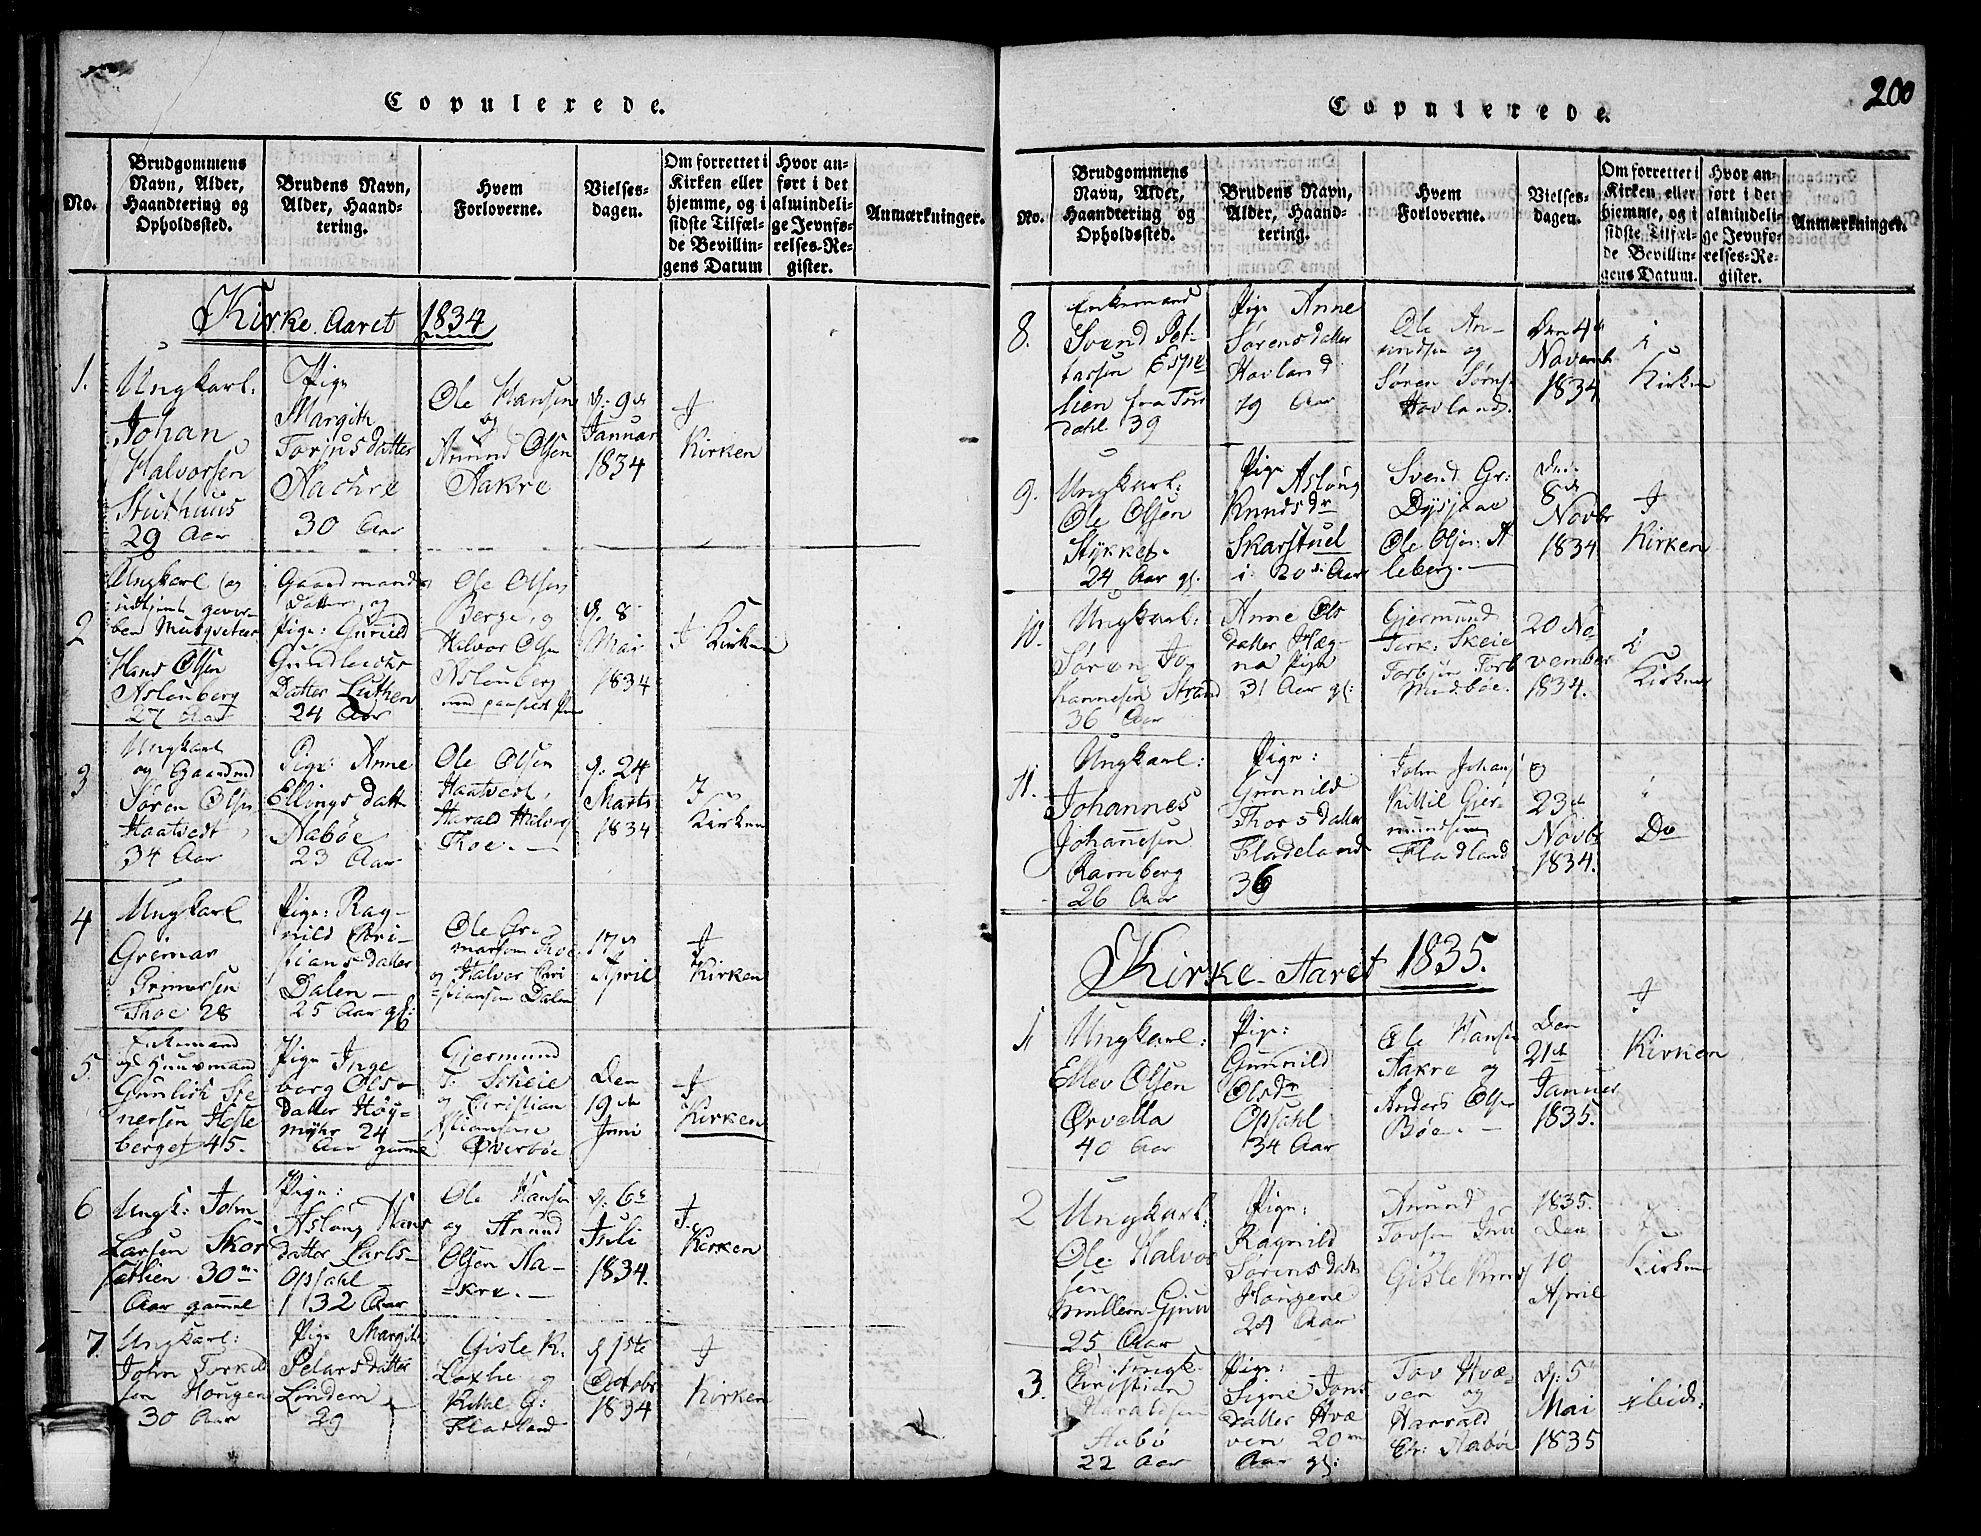 Copulerede.
No.
Brudgommens Navn, Alder, Haandtering og Opholdssted.
Brudens Navn, Alder, Haandtering.
Hvem Forloverne.
Vielsesdagen.
Om forrettet i Kirken eller hjemme, og i sidste Tilfælde Bevillingens Datum
Hvor anført i det almindelige Jevnførelses-Register.
Anmærkninger.
Kirke Aaret 1834
1.
Ungkarl:
Johan
Halvorsen
Stuthuus
29 Aar
Pige
Margith
Torjusdatter
Aachre
30 Aar
Ole Hansen
og
Anund Olsen
Aakre
Januar
1834
I
Kirken
2
Ungkarl og
Hans Olsen
Aslauberg
27 Aar
Gaardmands
Datter, og
Pige: Gunild
Gundleichs
Datter Luthen
24 Aar
Ole Olsen
Berge, og
Halvor Olsen
Aslauberg
d. 8
Mai
1834
I Kirken
3
Ungkarl
og Gaardmd
Søren Olsen
Haatvedt,
34 Aar
Pige: Anne
Ellingsdatt
Aabøe
23 Aar
Ole Olsen
Haatvedt,
Harald Halvors
Thoe.
d. 24
Marts
1834
I
Kirken
4
Ungkarl
Grimar
Grimarsen
Thoe 28
Pige: Rag-
nild Cri-
stiansdatter
Dalen
25 Aar gl:
Ole Gri-
marsen Thoe
og Halvor Cri
=stiansen Dalen
17de
April
I
Kirken
5.
Enkemand
og Huusmand
Gunlich Ste
nersen Heste
berget 45.
Pige Inge
borg Ols=
datter Høy=
myhr 24
Aar gamme
Gjermund
T. Scheie
og Christian
Øverbøe
Den
19de
Juni
I
Kirken
6
Ungk: John
Larsen Skor
30
Aar gamme
Pige:
Aslaug Hans
datter Carls-
Opsahl
32 Aar
Ole Hansen
og Anund
Olsen Aa-
=kre.
d: 6te
Juli
1834.
I.
Kirken
7.
Ungkarl:
John Torkild
sen Hougen
30 Aar
Pige Margith
Pedersdatter
29
Gisle K.
Loxhe og
Kittil G:
Fladland
d 1ste
Octobr
1834
I
Kirken
Copulerede.
200
No.
Brudgommens Navn, Alder, Haandtering og Opholdssted.
Brudens Navn, Alder, Haandtering.
Hvem Forloverne.
Vielsesdagen.
Om forrettet i Kirken eller hjemme, og i sidste Tilfælde Bevillingens Datum.
Hvor anført i det almindelige Jevnførelses-Register.
Anmærkninger.
8.
Enkemand
Svend Pet-
tersen Espe
lien fra Tør
dahl 39
Pige Anne
Sørensdatter
Hovland
19 Aar
Ole An-
undsen og
Søren Sørns
Hovland.
Den 4de
Novemb
1834
i
Kirken
9.
Ungkarl:
Ole Olsen
Stykket.
24 Aar gl.
Pige Aslaug
Knudsdr
Skarstuel
Svend Gr:
Ole Olsen A
leberg.
Den
8de
Novbr
1834
I
Kirken
10.
Ungkarl:
Søren Jo
hannesen Strand
36 Aar
Anne Ols
datter Hæg-
na Pige
31 Aar gl:
Gjermund
Terk: Skeie
Torbjørn Torb
Midbøe.
20 No
vember
1834.
i
Kirken
11.
Ungkarl:
Johannes
Johannesen
Ramberg
26 Aar
Pige:
Gunnild
Thorsdatter
Fladeland
36
John Johans
Kittil Gjer-
mundsen
Fladland
d
23de
Novbr
1834.
i
Do
Kirke-Aaret 1835.
1
Ungkarl:
Ellev Olsen
Ørvella
40 Aar
Pige:
Gunnild
Olsdr
Opsahl
34 Aar
Ole Hansen
Aakre og
Anders Olsen
Bøe.
Den
21de
Januar
1835.
I
Kirken
2
Ungkarl:
Ole Halvor
sen
25 Aar
Pige:
Ragnild
Sørensdatter
Hougene
24 Aar
Anund
Gisle Knuds
1835.
Den
10
April
I
Kirken
3.
Ungk.
Christian
Haraldsen
Aabø
22 Aar
Pige:
Signe Jons
datter Hvæ
ven 20
Aar gl:
Tov Hvæ-
ven og
Harrald
Chr: Aabøe
d: 5
Mai
1835
ibid: